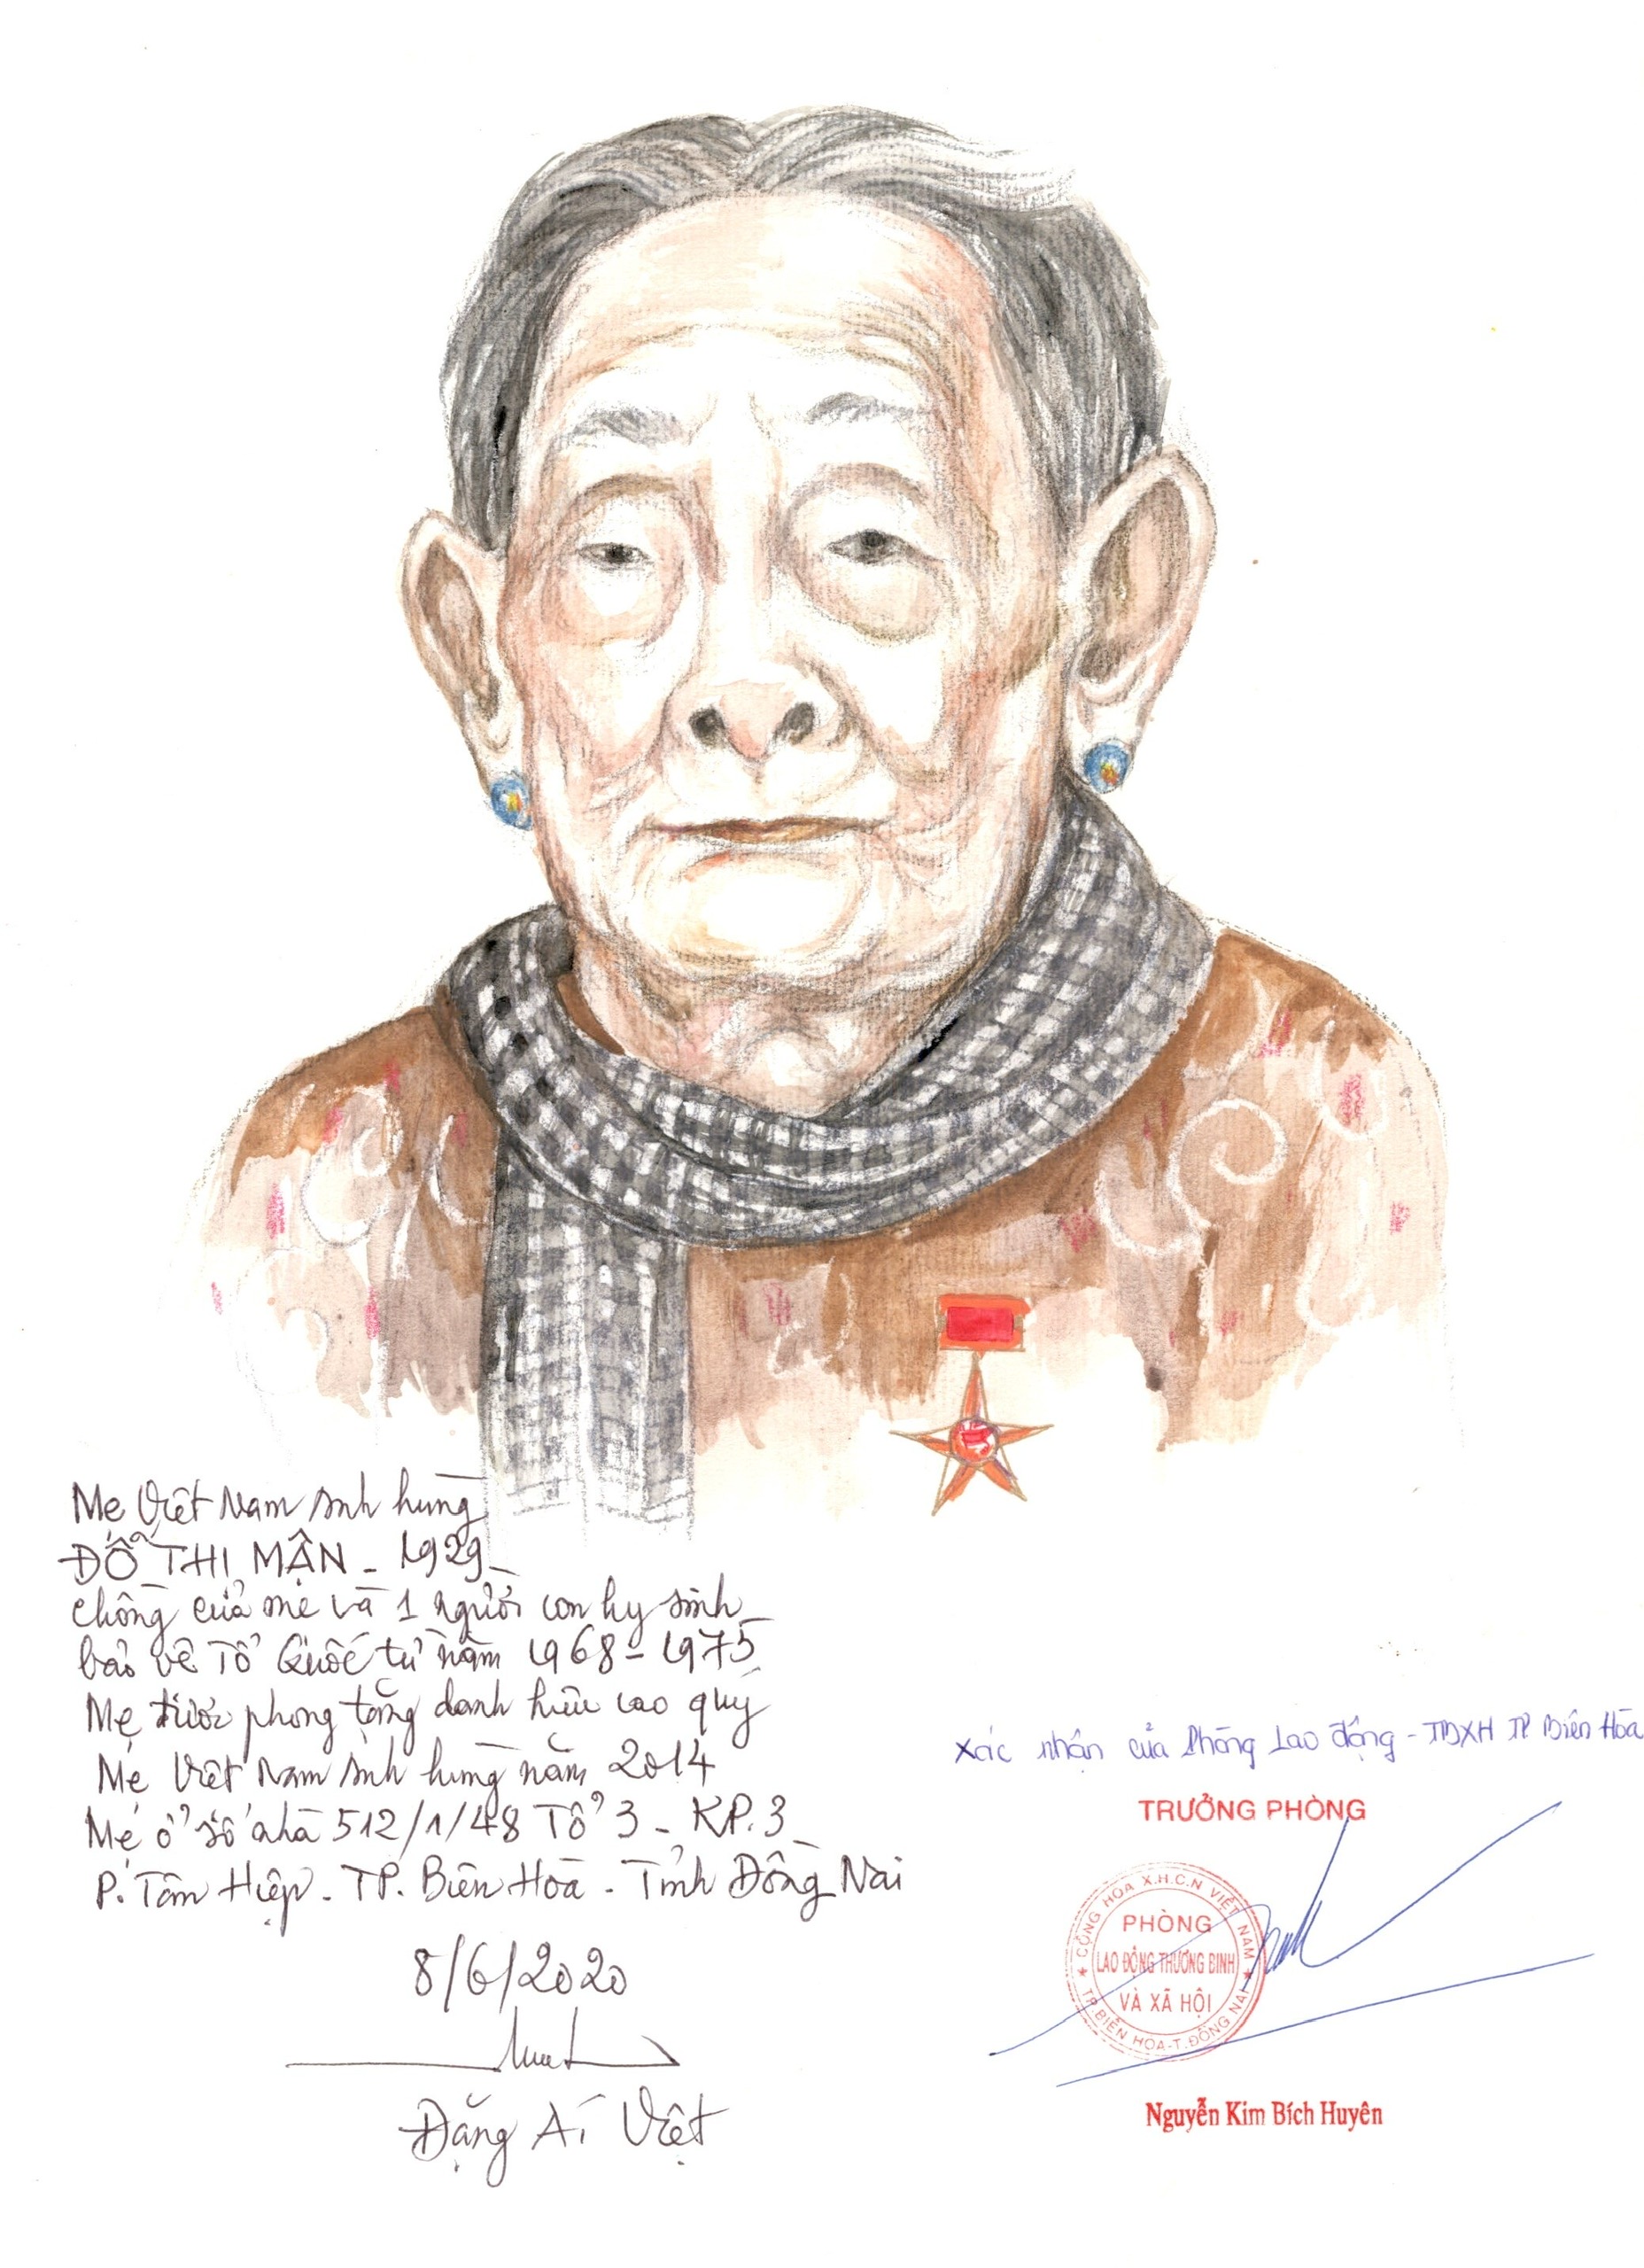 Mẹ Việt Nam Anh hùng
ĐỖ THỊ MẬN - 1929
chồng của mẹ và 1 người con hy sinh
bảo vệ Tổ Quốc từ năm 1968 - 1975
Mẹ được phong tặng danh hiệu cao quý
Mẹ Việt Nam Anh hùng năm 2014
Mẹ ở số nhà 512/1/48 Tổ 3 - KP.3
P. Tâm Hiệp - TP. Biên Hòa - Tỉnh Đồng Nai
8/6/2020
Đặng Ái Việt
Xác nhận của Phòng Lao động - TBXH TP Biên Hòa
TRƯỞNG PHÒNG
CỘNG HÒA X.H.C.N VIỆT NAM
PHÒNG
LAO ĐỘNG THƯƠNG BINH
VÀ XÃ HỘI
TP. BIÊN HÒA - T. ĐỒNG NAI
Nguyễn Kim Bích Huyên